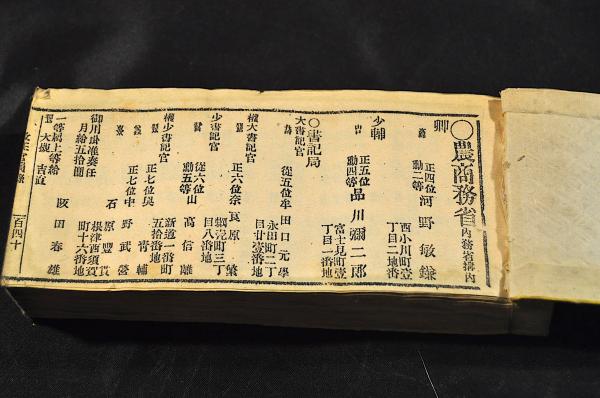 ○農商務省 内務省搆内
卿
正四位 勳二等 河野敏鎌
西小川町壹丁目二地番
少輔
正五位 勳四等 品川彌二郎
富士見町壹丁目一番
○書記局
大書記官
從五位 牟田口元學
永田町二丁目廿壹番地
權大書記官
正六位 奈良原繁
三丁目八番地
少書記官
從六位 勳五等 山高信離
新道一番町五拾番地
權少書記官
正七位 靑輔
正七位 中野武營
石原豐貫
根津西須賀町十六番地
御用掛准奏任
月給五拾圓
一等屬上等給
坂田春雄
百四十